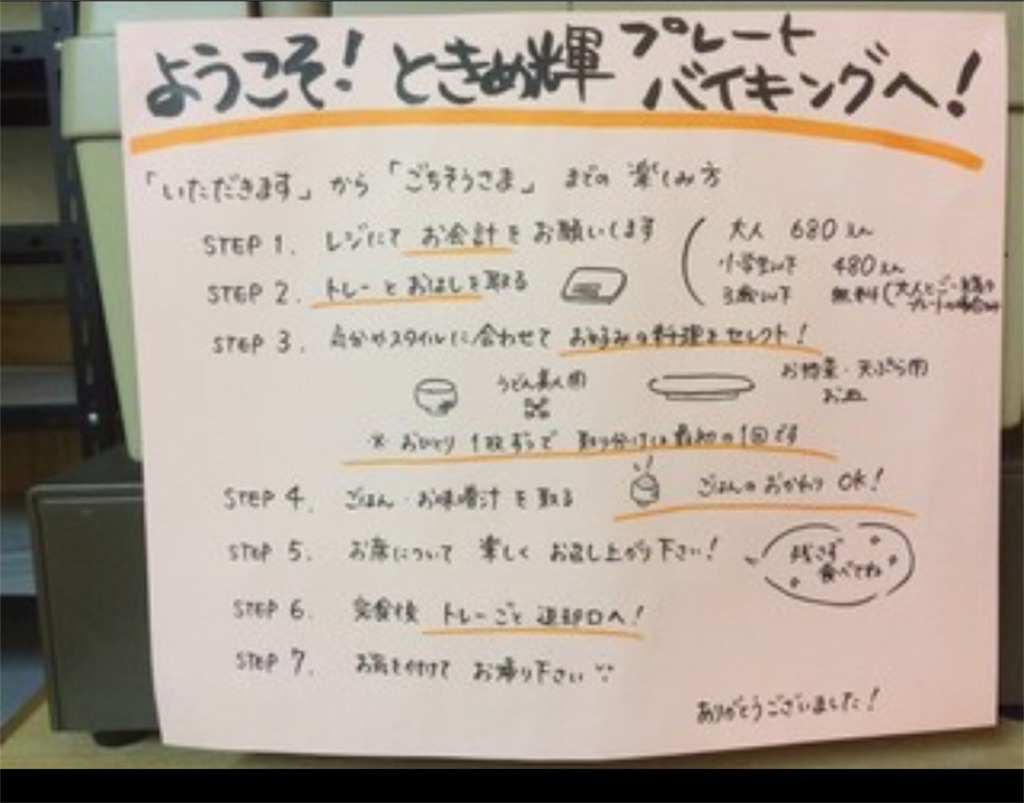 ようこそ!ときめ輝プレートバイキングへ!
「いただきます」から「ごちそうさま」までの楽しみ方
STEP 1. レジにてお会計をお願いします
大人 680えん
小学生以下 480えん
3歳以下 無料(大人とご一緒の
プレートの場合のみ
STEP 2. トレーとおはしを取る
STEP 3. 自分のスタイルに合わせてお好みの料理をセレクト!
うどん
お惣菜・天ぷら用
お皿
※おひとり1枚ずつで取り分けは最初の1回です
STEP 4. ごはん・お味噌汁を取る
ごはんのおかわりOK!
STEP 5. お席について楽しくお召し上がり下さい!
残さず
食べてね
STEP 6. 完食後トレーごと返却口へ!
STEP 7. お気を付けてお帰り下さい
ありがとうございました!